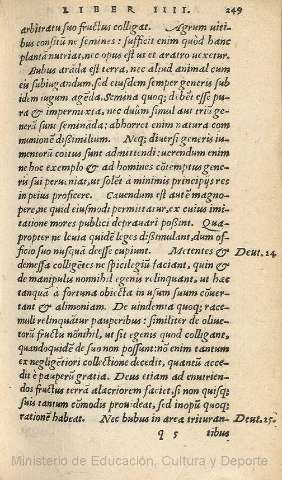 LIBER IIII. 249
arbitratu suo fructus colligat. Agrum viti-
bus consitũ ne semines: sufficit enim quòd hanc
plantã nutriat, nec opus est ut et aratro vexetur.
Bubus arãda est terra, nec aliud animal cum
eis subiugandum, sed eiusdem semper generis sub
idem iugum agẽda. Semina quoq; debẽt esse pu-
ra & impermixta, nec duûm simul aut triũ ge-
nerũ sunt seminãda: abhorret enim natura com-
munionẽ dissimilium. Neq; diuersi generis iu-
mentorũ coitus sunt admittendi: uerendum enim
ne hoc exemplo & ad homines cõtemptus gene-
ris sui perueniat, ut solẽt à minimis principijs res
in peius proficere. Cauendum est autẽ magno-
pere, ne quid eiusmodi permittatur, ex cuius imi-
tatione mores publici deprauari possint. Qua-
propter ne leuia quidẽ leges dissimulant, dum of-
ficio suo nusquã deesse cupiunt. Metentes & Deut. 24
demessa colligẽtes ne spicilegiũ faciant, quin &
de manipulis nonnihil egenis relinquant, ut hæc
tanquã à fortuna obiecta in usum suum cõuer-
tant & alimoniam. De uindemia quoq; race-
muli relinquãtur pauperibus: similiter de oliue-
torũ fructu nõnihil, ut sit egenis quod colligant,
quandoquidẽ de suo non possunt: nõ enim tantum
ex negligẽtiori collectione decedit, quantũ acce-
dit è pauperũ gratia. Deus etiam ad enutrien-
dos fructus terrã alacriorem faciet, si non quisq;
sui tantum cõmodis prouideat, sed inopũ quoq;
rationẽ habeat. Nec bubus in area trituran- Deut. 25.
q 5 tibus
Ministerio de Educación, Cultura y Deporte